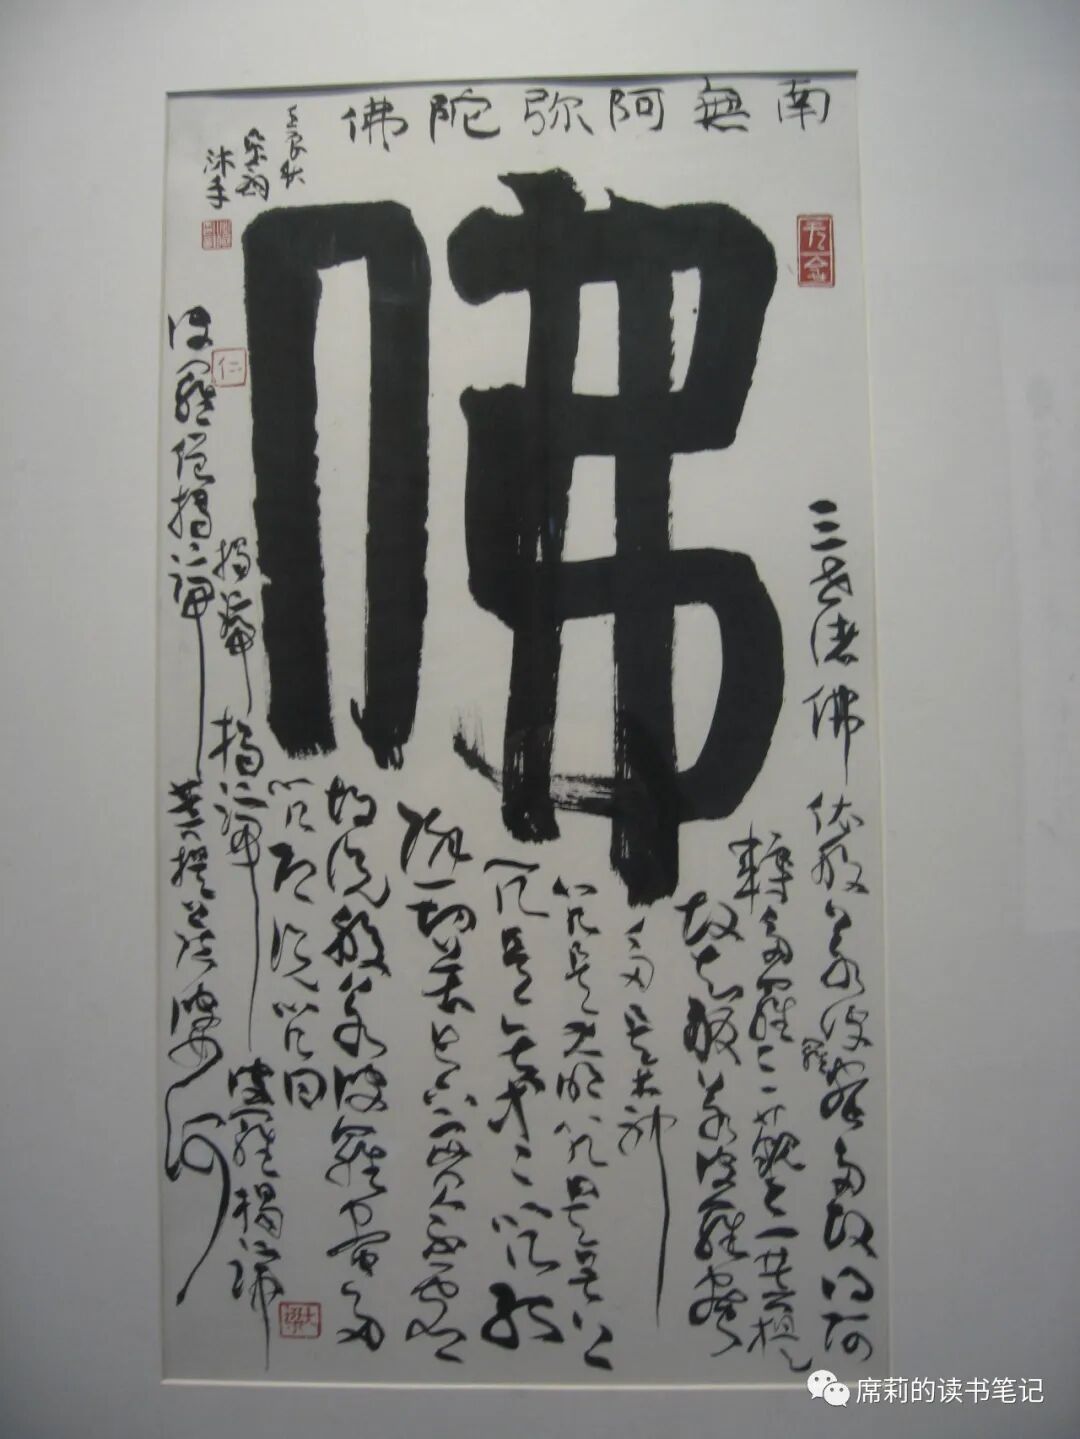 南無阿弥陀佛
佛
三世诸佛依般若波羅蜜多故得阿
耨多羅三藐三菩提
故知般若波羅蜜
多是大神
咒是大明咒是無上
咒是無等等咒能
除一切苦真實不虚
故说般若波羅蜜多
咒即说咒曰
揭諦揭諦波羅揭諦
波羅僧揭諦菩提薩婆訶
沐手
仁
席莉的读书笔记